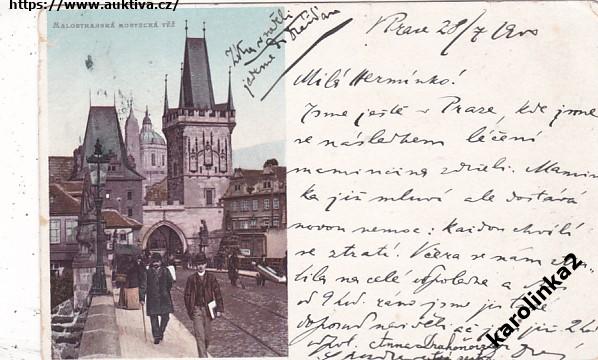 https://www.auktiva.cz/
MALOSTRANSKÁ MOSTECKÁ VĚŽ
jsme
V Praze 28/7 1900
Milá Hermínko!
Jsme ještě v Praze, kde jsme
se následkem léčení
maminčina zdrželi. Mamin
ka již mluví ale dostává
novou nemoc: každou chvíli
se ztratí. Včera se nám
na celé odpoledne a
od 9 hod. ráno jsme ji
doposud neviděli ač je již 2 hod.
odpol.
karolinka2